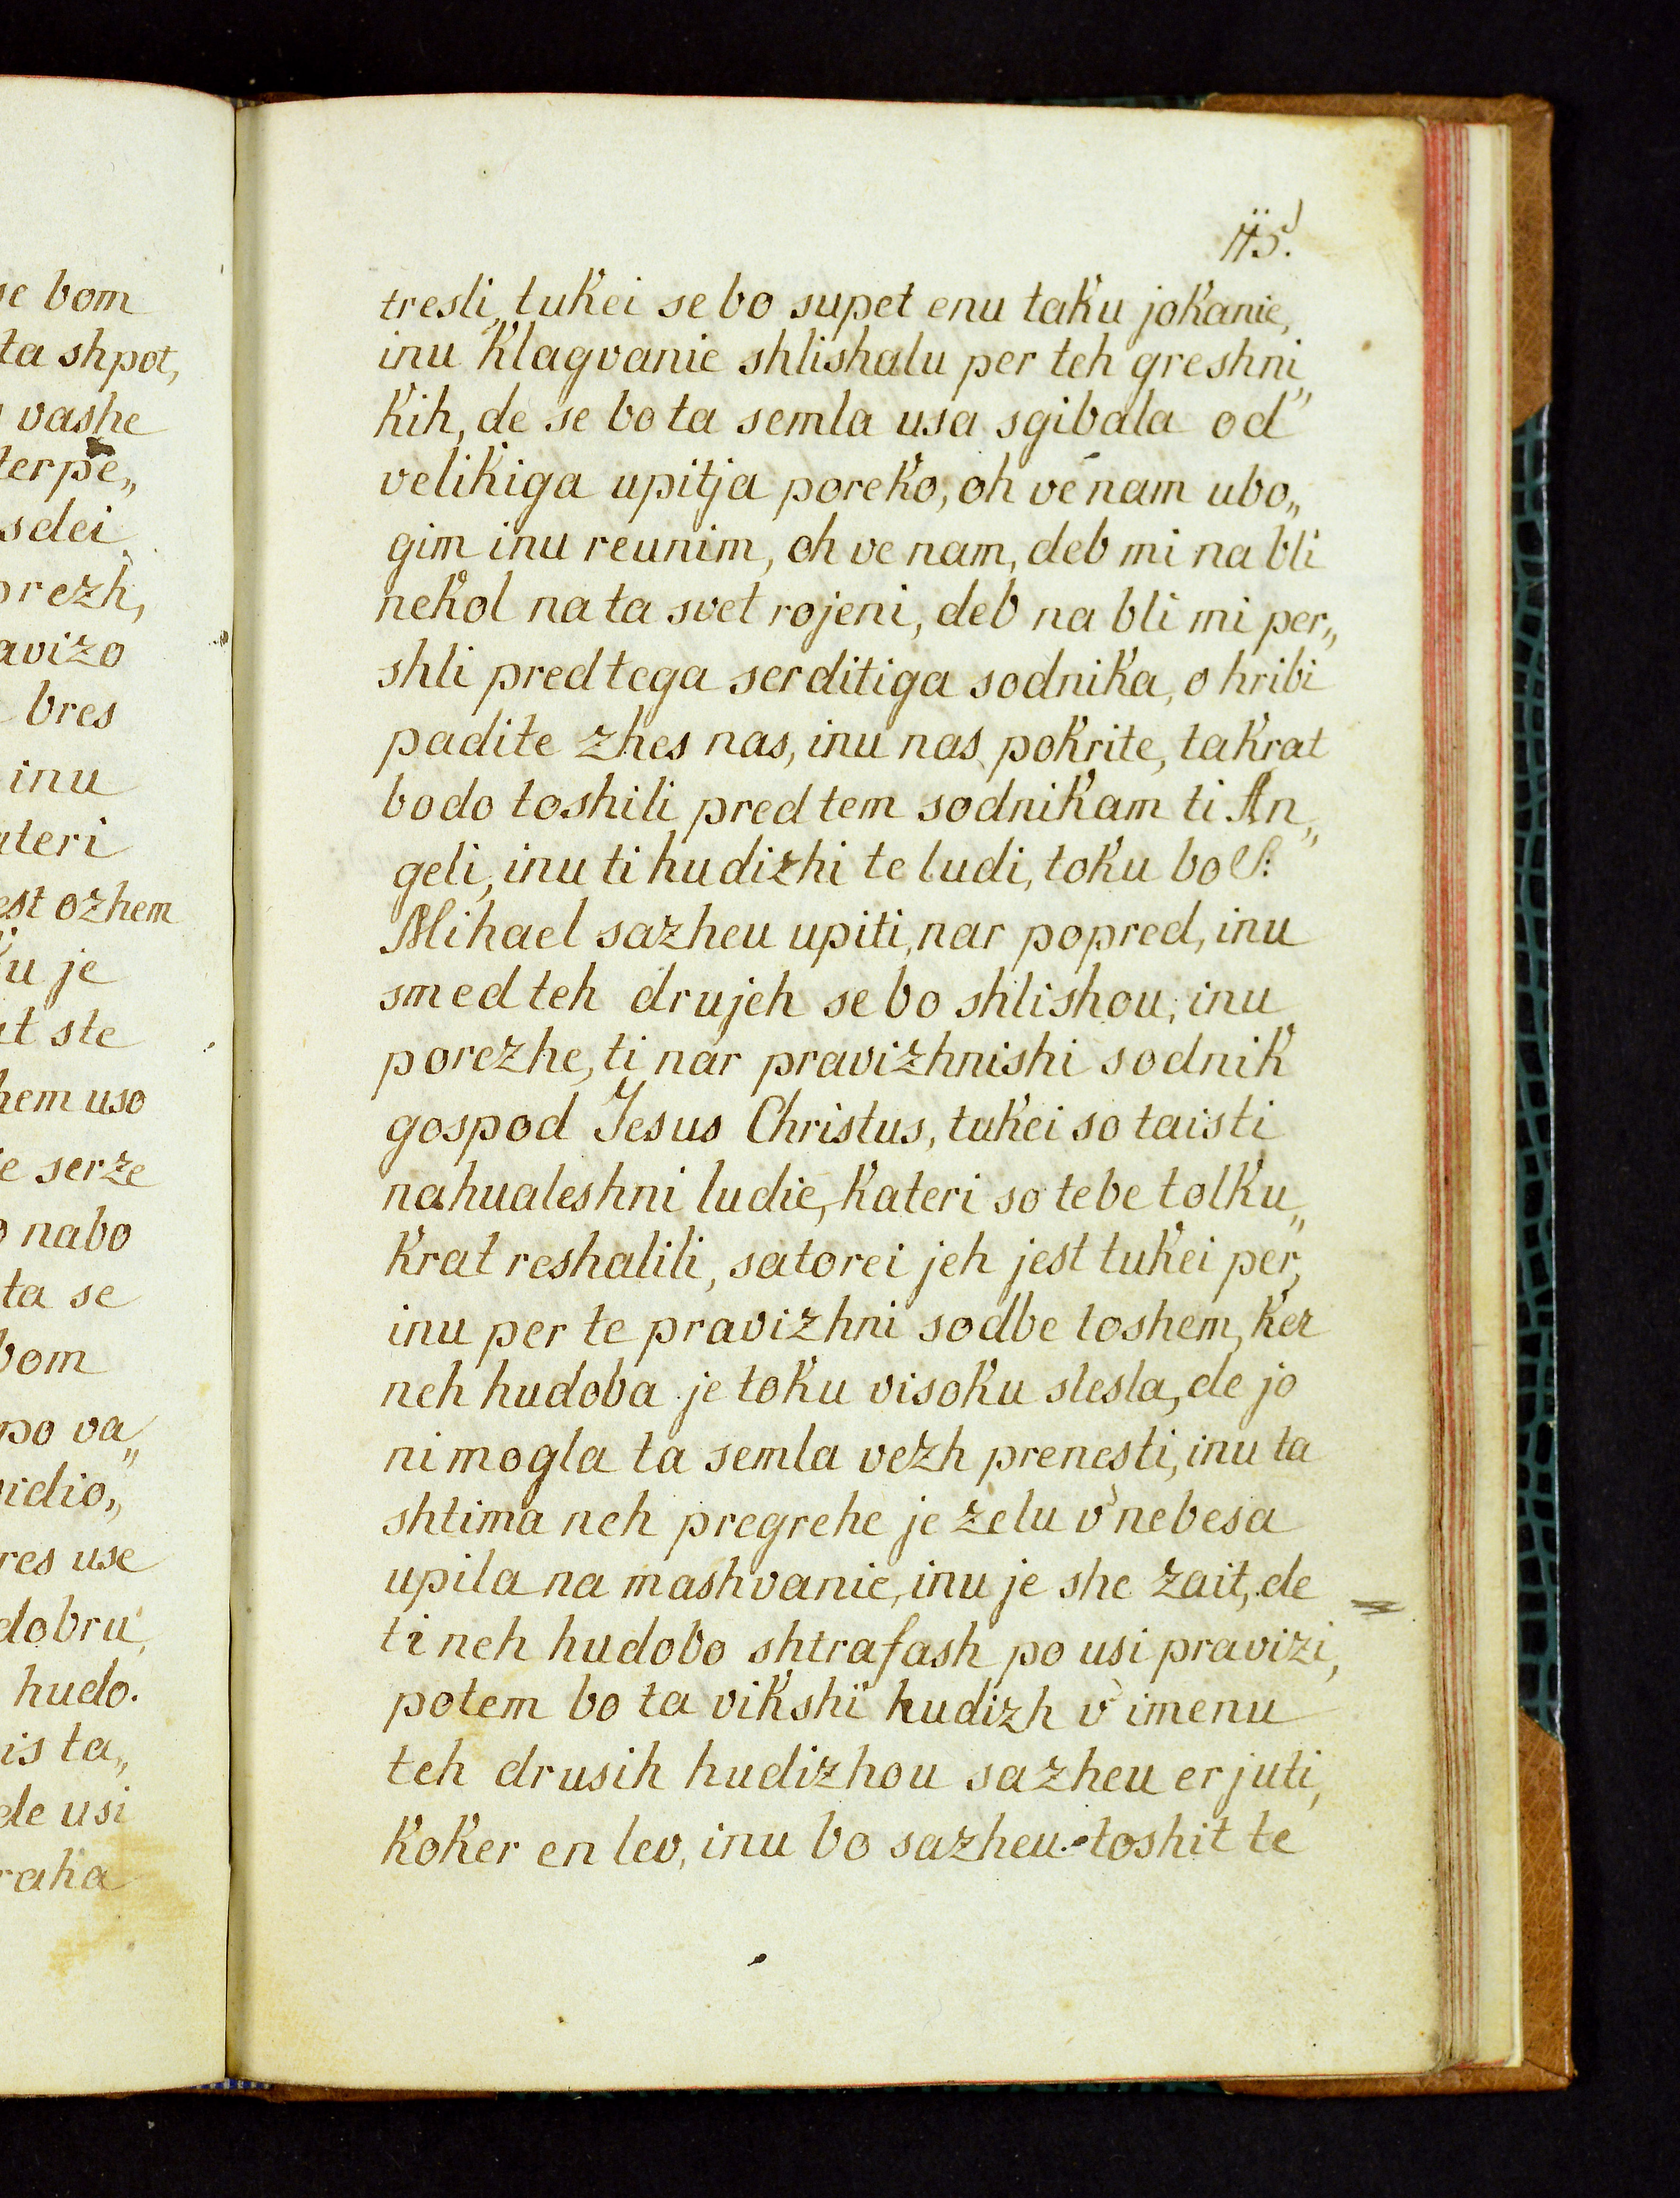 se bom
ta shpot,
vashe
terpe„
sdei
prezh,
avizo
bres
inu
ateri
est ozhem
ku je
at ste
hem uso
e serze
nabo
ta se
bom
po va„
vidio„
res use
dobru,
hudo.
is ta„
de usi
raka
115.
tresli, tukei se bo supet enu taku jokanie,
inu klagvanie shlishalu per teh greshni„
kih, de se bo ta semla usa sgibala od
velikiga upitja poreko, oh ve nam ubo„
gim inu reunim, oh ve nam, deb mi na bli
nekol na ta svet rojeni, deb na bli mi per„
shli pred tega serditiga sodnika, o hribi
padite zhes nas, inu nas pokrite, takrat
bodo toshili pred tem sodnikam ti An„
geli, inu ti hudizhi te ludi, toku bo S:
Mihael sazheu upiti, nar popred, inu
smed teh drujeh se bo shlishou, inu
porezhe, ti nar pravizhnishi sodnik
gospod Jesus Christus, tukei so taisti
nahualeshni ludie, kateri so tebe tolku„
krat reshalili, satorei jeh jest tukei per,
inu per te pravizhni sodbe toshem, ker
neh hudoba je toku visoku slesla, de jo
ni mogla ta semla vezh prenesti, inu ta
shtima neh pregrehe je zelu v' nebesa
upila na mashvanie, inu je she zait, de
ti neh hudobo shtrafash po usi pravizi,
potem bo ta vikshi hudizh v' imenu
teh drusih hudizhou sazheu erjuti,
koker en lev, inu bo sazheu toshit te